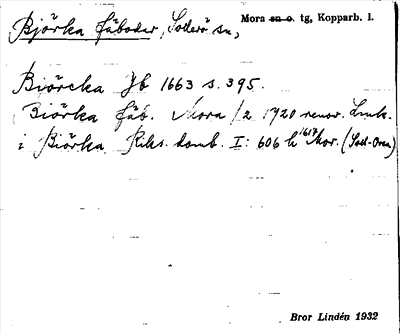 Björka fäbodar, Sollerö sn,
Mora sn o. tg, Kopparb. l.
Biörcka Jb 1663 s. 395.
Biörka fäb. Mora 1/2 1720 renov. Lmk.
i Biörka Riks. domb. I: 606 h 1617 Mor. (Soll-Oren)
Bror Lindén 1932